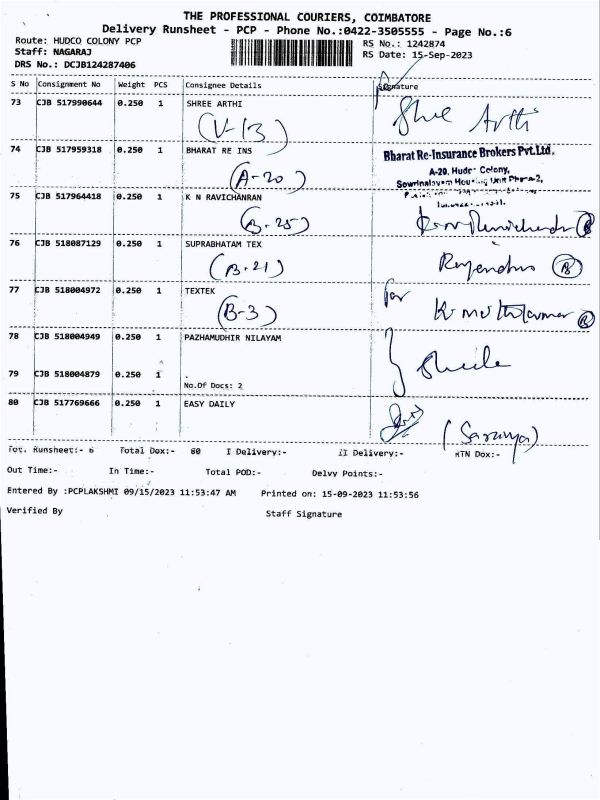 THE PROFESSIONAL COURIERS, COIMBATORE
Delivery Runsheet - PCP - Phone No.:0422-3505555 - Page No.:6
Route: HUDCO COLONY PCP RS No.: 1242874
Staff: NAGARAJ RS Date: 15-Sep-2023
DRS No.: DCJB124287406
S No Consignment No Weight PCS Consignee Details Signature
73 CJB 517990644 0.250 1 SHREE ARTHI
(V-13) Shree Arthi
74 CJB 517959318 0.250 1 BHARAT RE INS Bharat Re-Insurance Brokers Pvt.Ltd.
(A-20) A-20, Hudco Colony,
Sowrinalayam Housing Unit Phase-2,
75 CJB 517964418 0.250 1 K N RAVICHANRAN
(B-25)
76 CJB 518087129 0.250 1 SUPRABHATAM TEX
(B-21) Rajendran
77 CJB 518004972 0.250 1 TEXTEK for
(B-3)
78 CJB 518004949 0.250 1 PAZHAMUDHIR NILAYAM
79 CJB 518004879 0.250 1 .
No.Of Docs: 2
80 CJB 517769666 0.250 1 EASY DAILY
(Saranya)
Tot. Runsheet:- 6 Total Dox:- 80 I Delivery:- II Delivery:- RTN Dox:-
Out Time:- In Time:- Total POD:- Delvy Points:-
Entered By :PCPLAKSHMI 09/15/2023 11:53:47 AM Printed on: 15-09-2023 11:53:56
Verified By Staff Signature